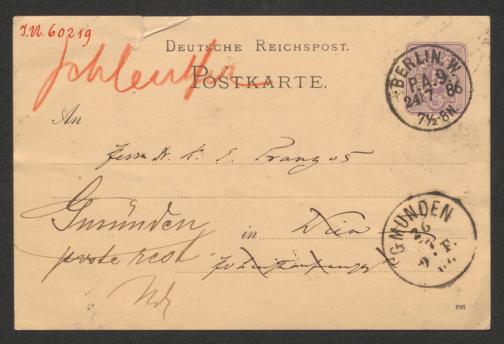 J.N. 60219
DEUTSCHE REICHSPOST.
POSTKARTE.
BERLIN, W.
P.A.9.
24/7 86
7½-8N.
An
Herrn K. E. Franzos
Gmünden
in Wien
poste rest
GMUNDEN
26
686